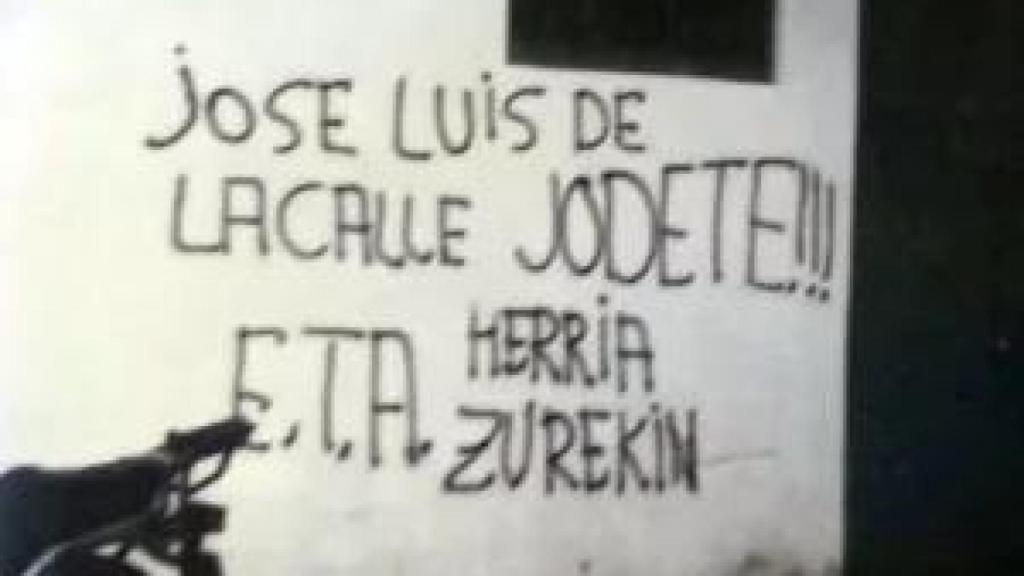 JOSE LUIS DE
LACALLE JODETE!!!
E.T.A. HERRIA
ZUREKIN